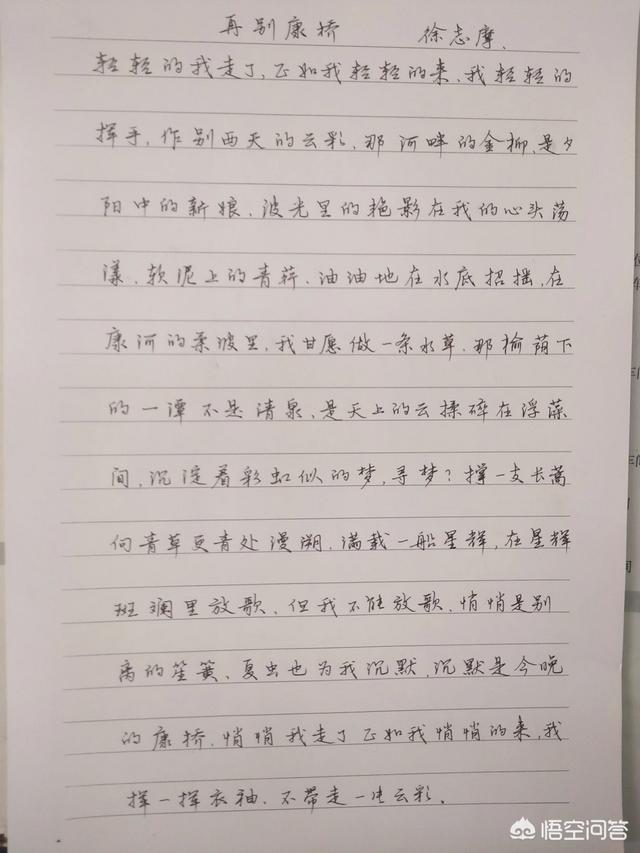 再别康桥 徐志摩.
轻轻的我走了,正如我轻轻的来,我轻轻的
挥手,作别西天的云彩,那河畔的金柳,是夕
阳中的新娘,波光里的艳影在我的心头荡
漾,软泥上的青荇,油油地在水底招摇,在
康河的柔波里,我甘愿做一条水草,那榆荫下
的一潭不是清泉,是天上的云揉碎在浮藻
间,沉淀着彩虹似的梦,寻梦?撑一支长蒿
向青草更青处漫溯,满载一船星辉,在星辉
斑斓里放歌,但我不能放歌,悄悄是别
离的笙箫,夏虫也为我沉默,沉默是今晚
的康桥,悄悄我走了正如我悄悄的来,我
挥一挥衣袖,不带走一片云彩.
悟空问答